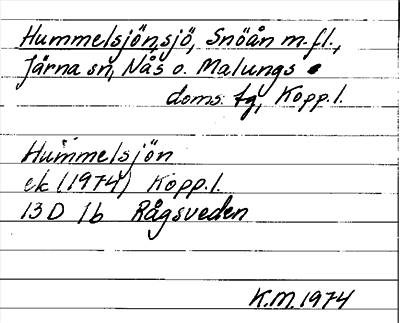 Hummelsjön, sjö, Snöån m.fl.,
Järna sn, Nås o. Malungs
doms. tg, Kopp.l.
Hummelsjön
ek (1974) Kopp.l.
13 D 1b Rågsveden
K.M. 1974